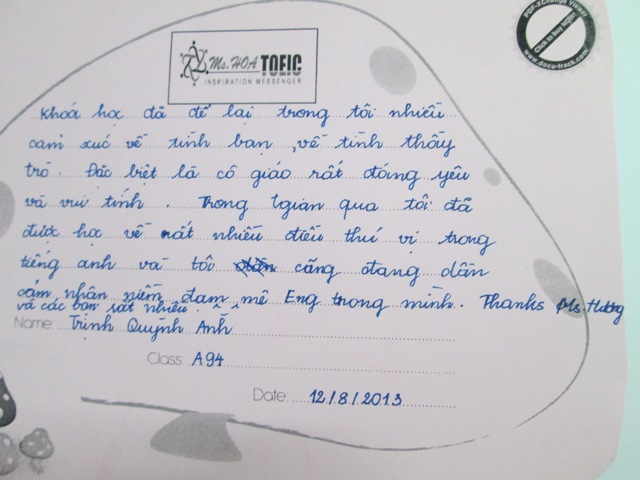 Ms. HOA TOEIC
INSPIRATION MESSENGER
PDF-XChange Viewer
Click to buy NOW!
www.docu-track.com
Khoá học đã để lại trong tôi nhiều
cảm xúc về tình bạn, về tình thầy
trò. Đặc biệt là cô giáo rất đáng yêu
và vui tính. Trong tgian qua tôi đã
được học về rất nhiều điều thú vị trong
tiếng anh và tôi cũng đang dần
cảm nhận niềm đam mê Eng trong mình. Thanks Ms. Hương
và các bạn rất nhiều.
Name: Trịnh Quỳnh Anh
Class: A94
Date: 12/8/2013